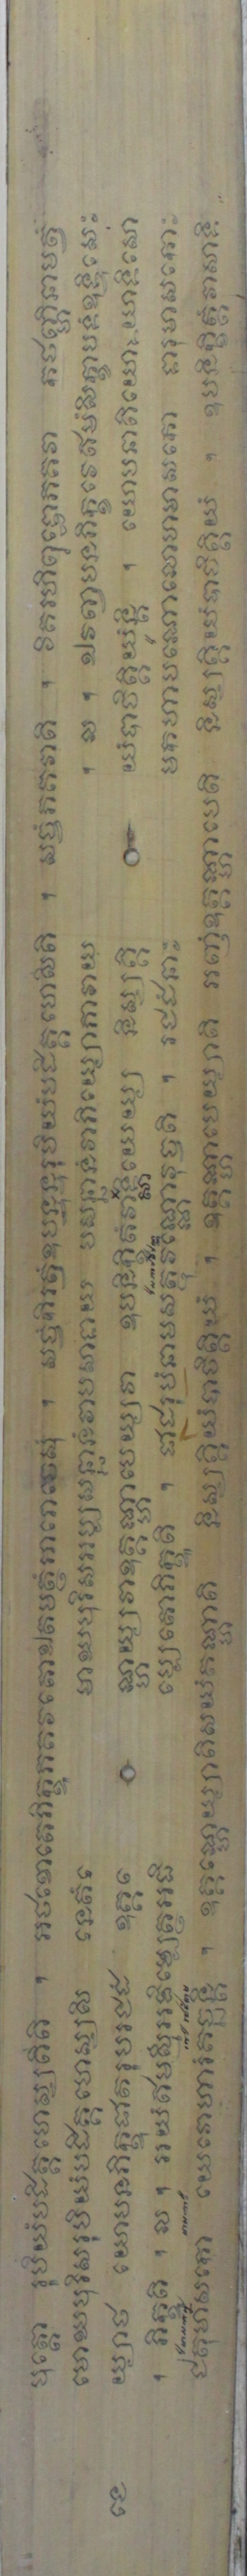 បុត្តោ រូបិយំបដិគ្គហេស្សតីតិ ។ អថខោតេភិក្ខូភគវតោឯតមត្ថំអារោចេសុំ ។ សច្ចំកិរត្វំឧបនន្ទរូបិយំបដិគ្គហេសីតិ ។ សច្ចំភគវាតិ ។ វិគរហិពុទ្ធោភគវា កថញ្ហិនាមត្វំ
មោឃបុរិសរូបិយំបដិគ្គហេស្សសិ នេតំមោឃបុរិសអប្បសន្នានំវាបសាទាយ បសន្នានំវាភិយ្យោភាវាយ ។ ល ។ ឯវញ្ចបនភិក្ខវេឥមំសិក្ខាបទំឧទ្ទិសេ
យ្យាថ យោបនភិក្ខុជាតរូបរជតំ ឧគ្គណ្ហេយ្យវាឧគ្គណ្ហាបេយ្យវា ឧបនិក្ខិត្តំវាសាទិយេយ្យ និស្សគ្គិយំបាចិត្តិយន្តិ ។ យោបនាតិយោ យាទិសោ
។ ភិក្ខូតិ ។ ល ។ អយំឥមស្មិំអត្ថេអធិប្បេតោភិក្ខូតិ ។ ជាតរូបំនាមសត្ថុវណ្ណោវុច្ចតិ ។ រជតំនាម កហាបណោលោហមាសកោ ទារុមាសកោ
ជតុមាសកោ យេវោហារំគច្ឆន្តិ ។ ឧគ្គណ្ហេយ្យាតិសយំគណ្ហាតិ និស្សគ្គិយំបាចិត្តិយំ ។ ឧគ្គណ្ហាបេយ្យាតិ អញ្ញំឧគ្គណ្ហាបេតិ និស្សគ្គិយំបាចិត្តិយំ ។ ឧបនិក្ខិត្តំវាសាទិ